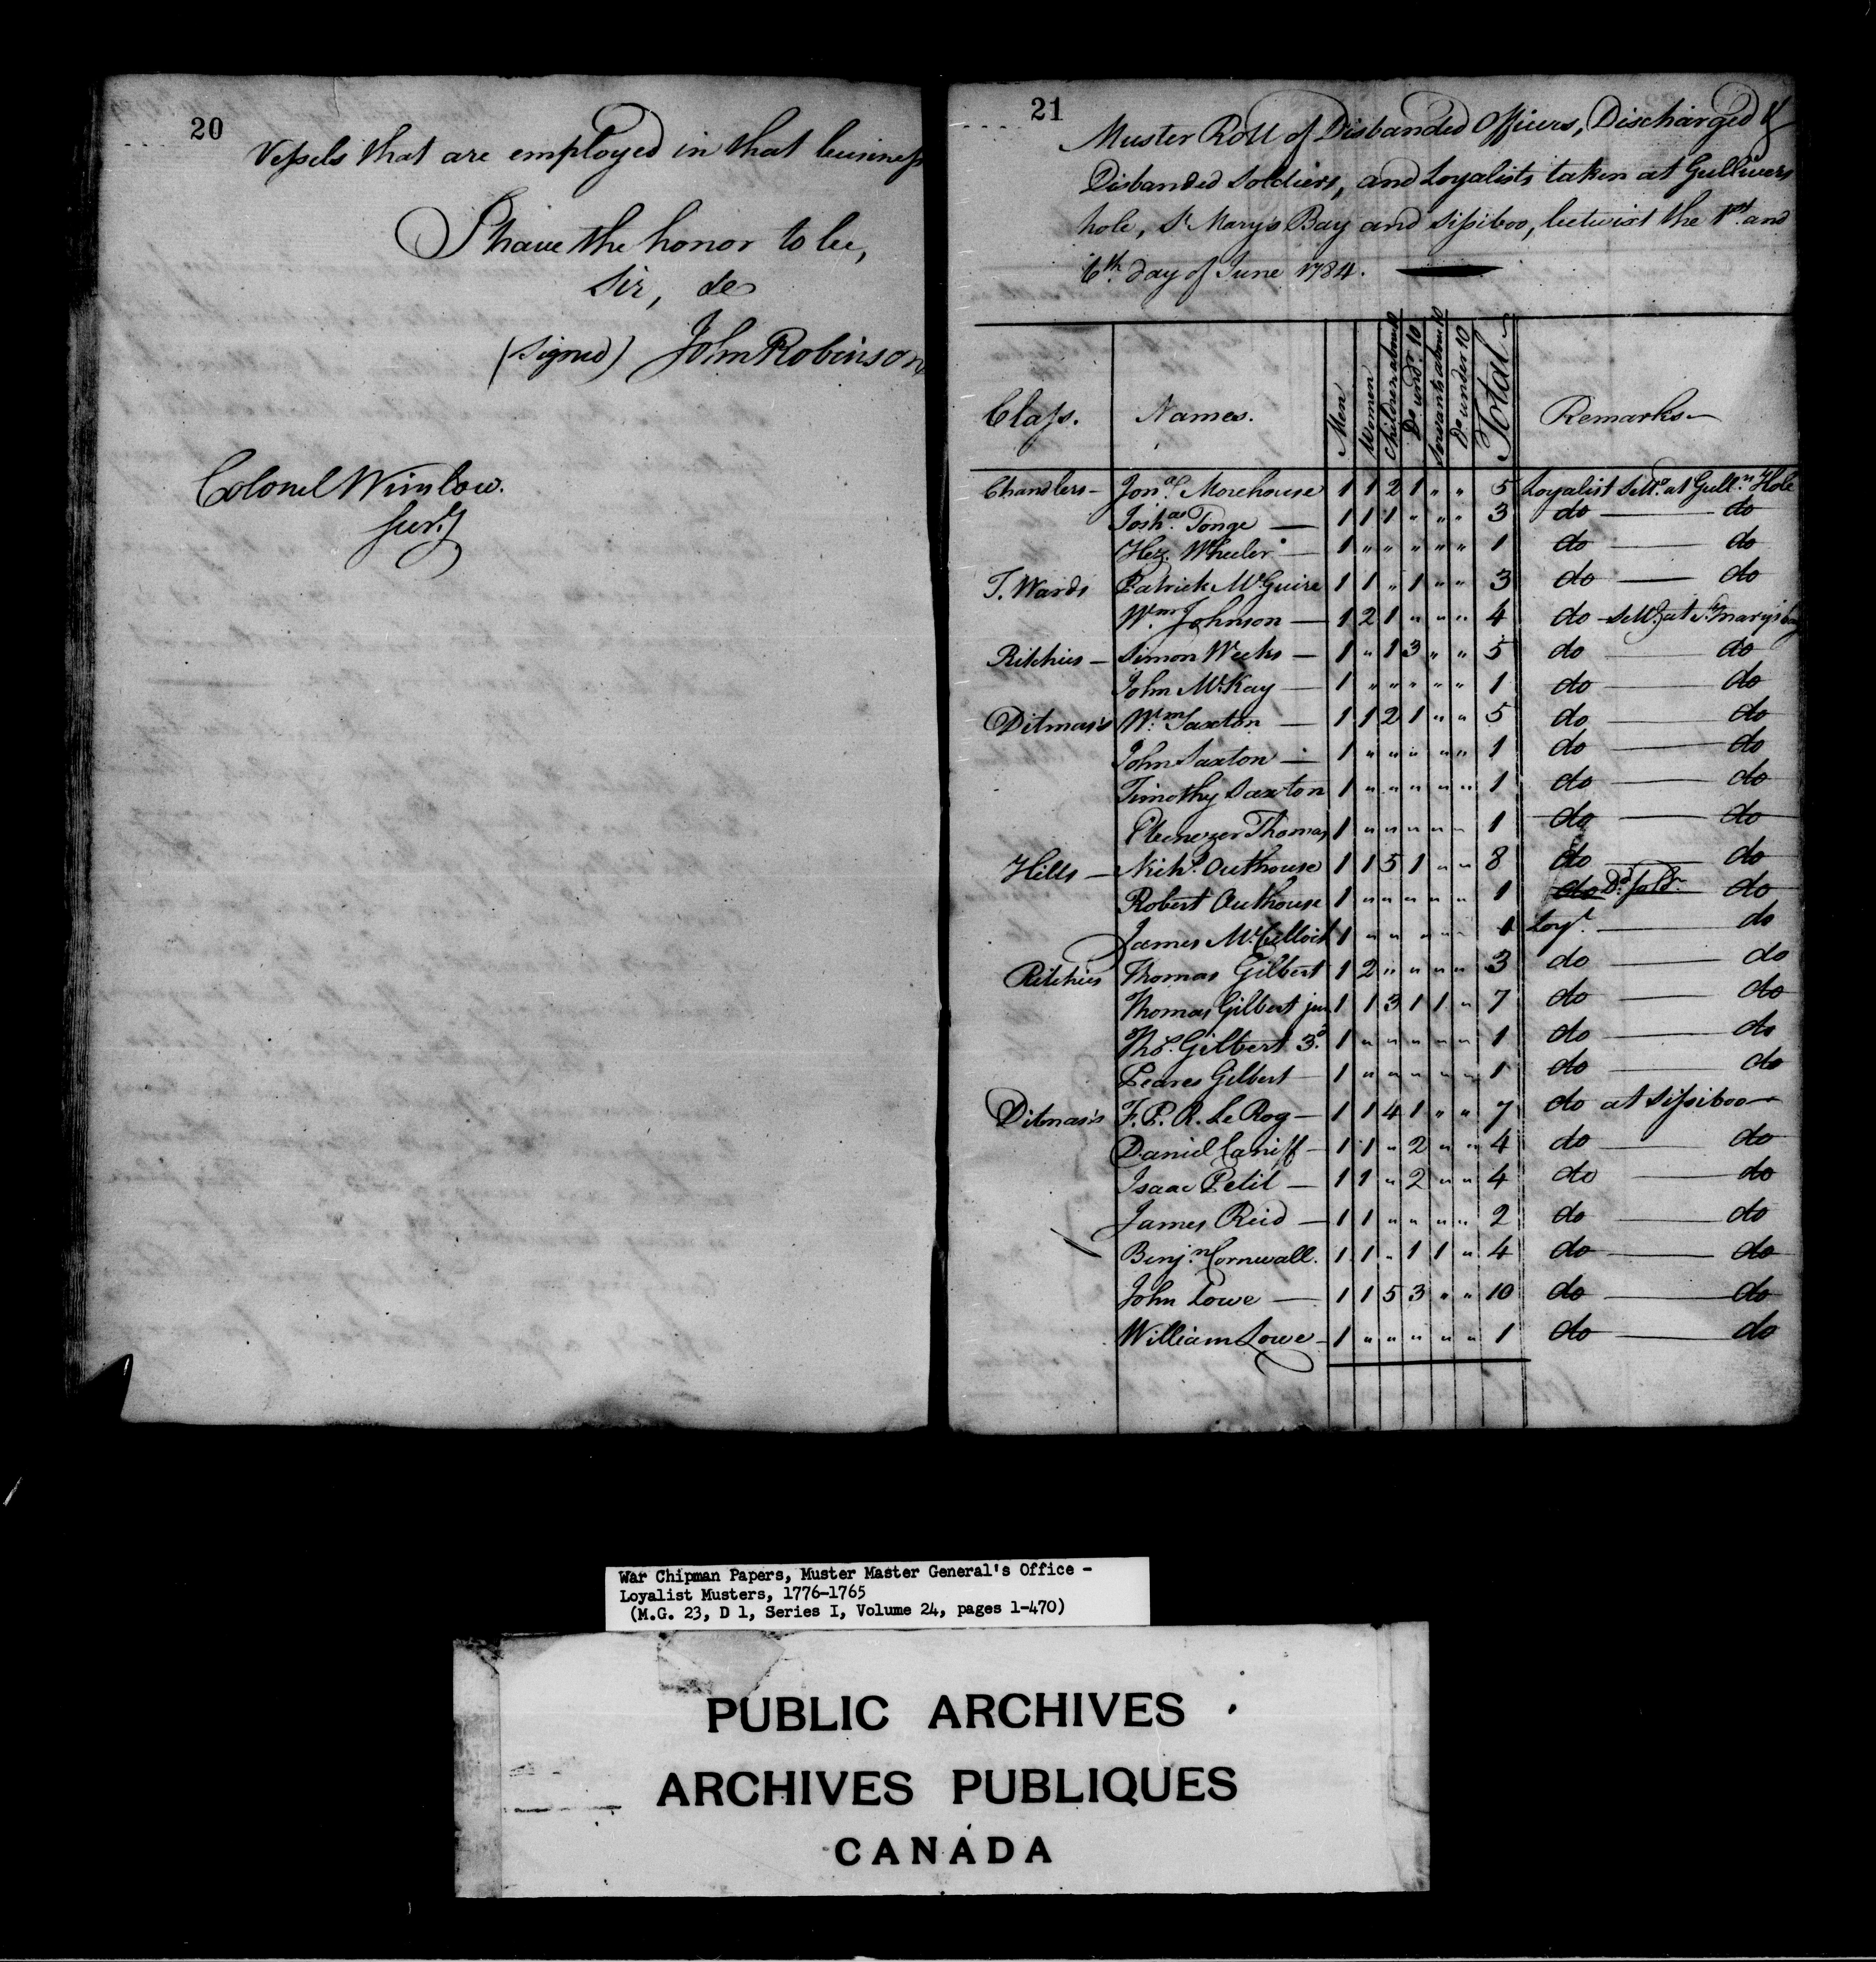 20
Vessels that are employed in that business
I have the honor to be,
Sir, &c
(signed) John Robinson
Colonel Winslow.
21
Muster Roll of Disbanded Officers, Discharged &
Disbanded Soldiers, and Loyalists taken at Gullivers
hole, St Marys Bay and Sissiboo, betwixt the 1st and
6th day of June 1784.
Class. Names. Men Women Children above 10 Do undr. 10 Servants above 10 Do under 10 Total Remarks
Chandlers Jonas Morehouse 1 1 2 1 " " 5 Loyalist Settd. at Gulln. Hole
Josha. Tonge 1 1 1 " " " 3 do do
Hez. Wheeler 1 " " " " " 1 do do
T. Wards Patrick McGuire 1 1 " 1 " " 3 do do
Wm. Johnson 1 2 1 " " " 4 do Settd. at St. Mary's bay
Ritchies Simon Weeks 1 " 1 3 " " 5 do do
John McKay 1 " " " " " 1 do do
Ditmas's Wm. Saxton 1 1 2 1 " " 5 do do
John Saxton 1 " " " " " 1 do do
Timothy Saxton 1 " " " " " 1 do do
Ebenezer Thomas 1 " " " " " 1 do do
Hills Nichs. Outhouse 1 1 5 1 " " 8 do do
Robert Outhouse 1 " " " " " 1 do Dd. Soldr. do
James McCulloch 1 " " " " " 1 Loyt. do
Ritchies Thomas Gilbert 1 2 " " " " 3 do do
Thomas Gilbert jun 1 1 3 1 1 " 7 do do
Ths. Gilbert 3d. 1 " " " " " 1 do do
Peares Gilbert 1 " " " " " 1 do do
Ditmas's F. P. R. Le Rog 1 1 4 1 " " 7 do at Sissiboo
Daniel Caniff 1 1 " 2 " " 4 do do
Isaac Petit 1 1 " 2 " " 4 do do
James Reid 1 1 " " " " 2 do do
Benjn. Cornwall. 1 1 " 1 1 " 4 do do
John Lowe 1 1 5 3 " " 10 do do
William Lowe 1 " " " " " 1 do do
War Chipman Papers, Muster Master General's Office -
Loyalist Musters, 1776-1765
(M.G. 23, D 1, Series I, Volume 24, pages 1-470)
PUBLIC ARCHIVES
ARCHIVES PUBLIQUES
CANADA